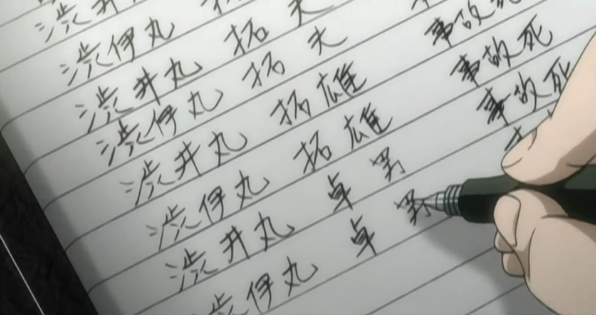 渋井
渋伊丸 拓夫
渋井丸 拓夫 事故死
渋伊丸 拓雄 事故死
渋井丸 拓雄 事故死
渋伊丸 卓男
渋井丸 卓男
渋伊丸